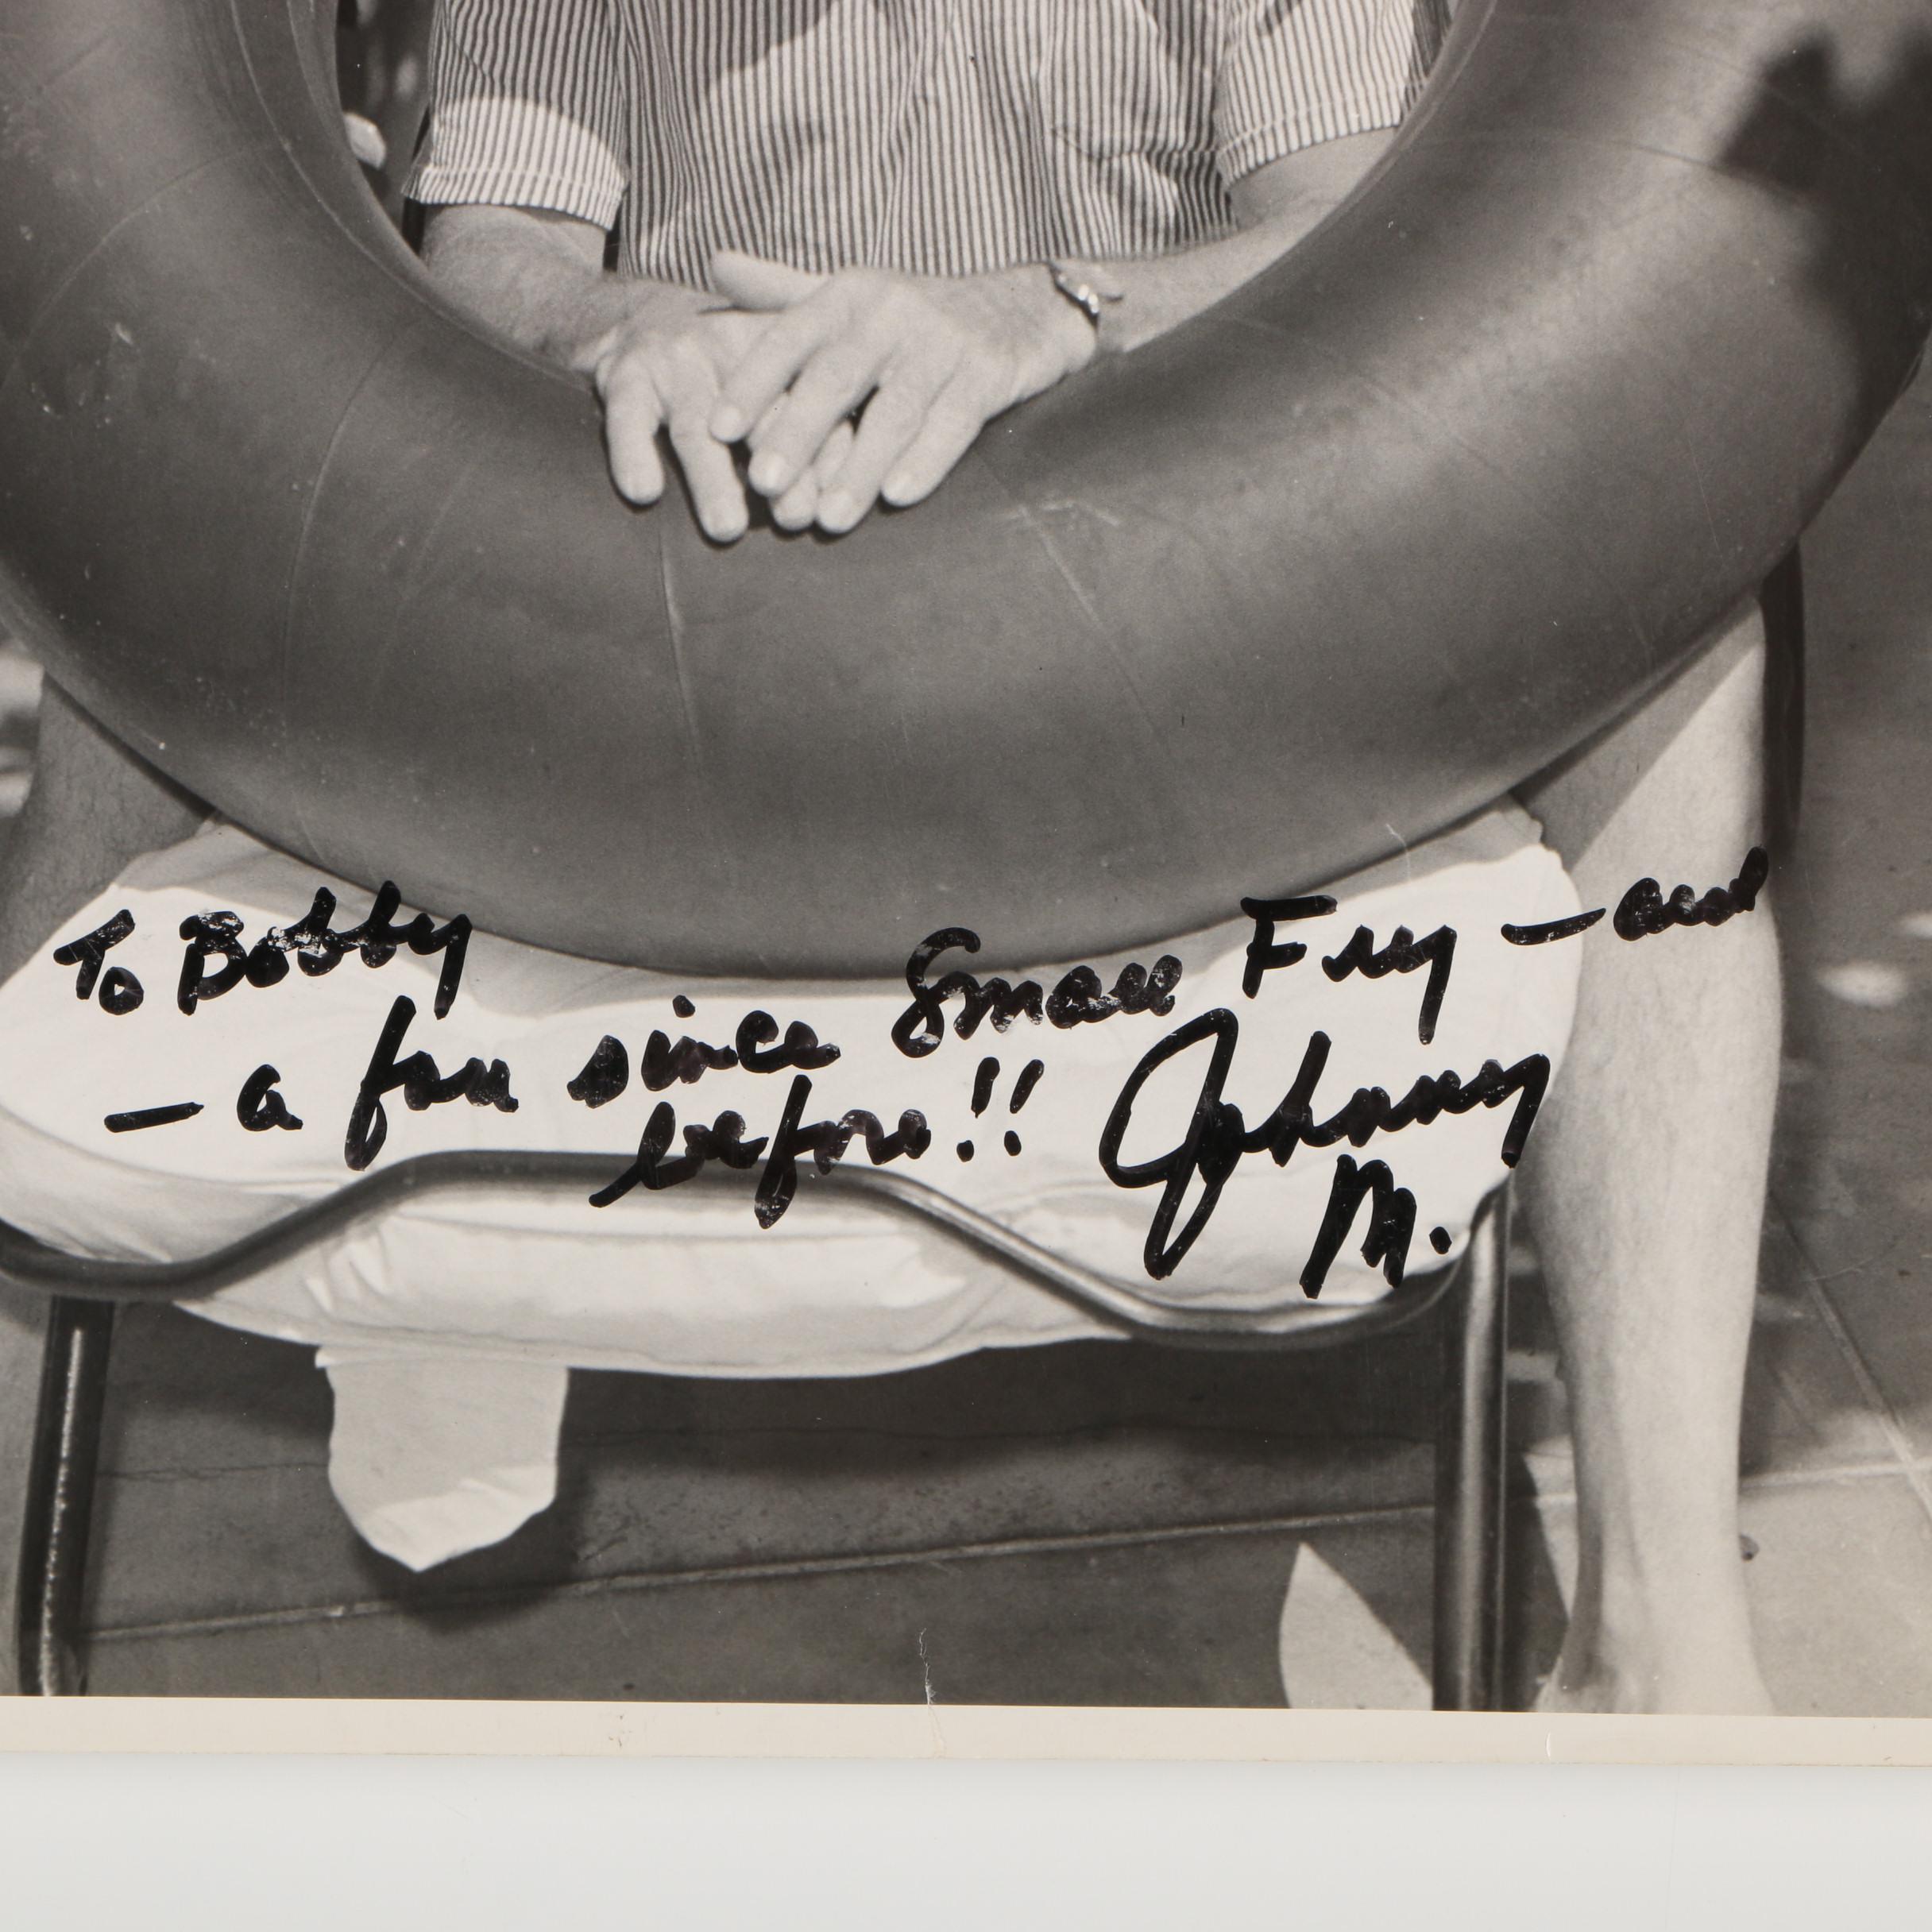 To Bobby
— a fan since Small Fry — and
before!! Johnny
M.